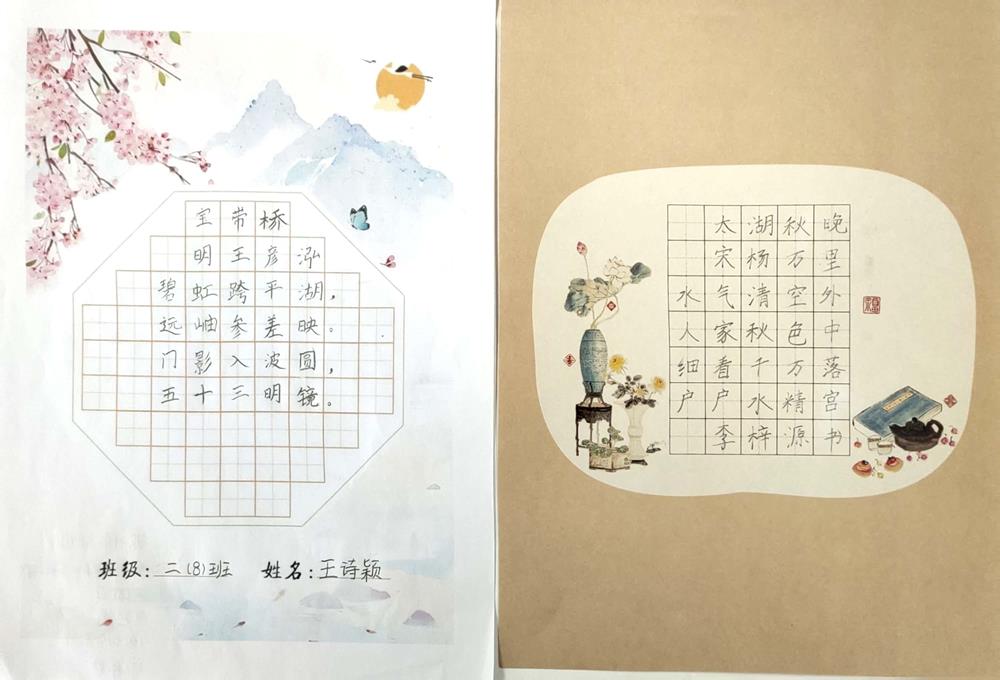 宝带桥
明 王彦泓
碧虹跨平湖，
远岫参差映。
门影入波圆，
五十三明镜。
班级：二(8)班 姓名：王诗颖
太湖秋晚
宋杨万里
水气清空外
人家秋色中
细看千万落
户户水精宫
李梓源书